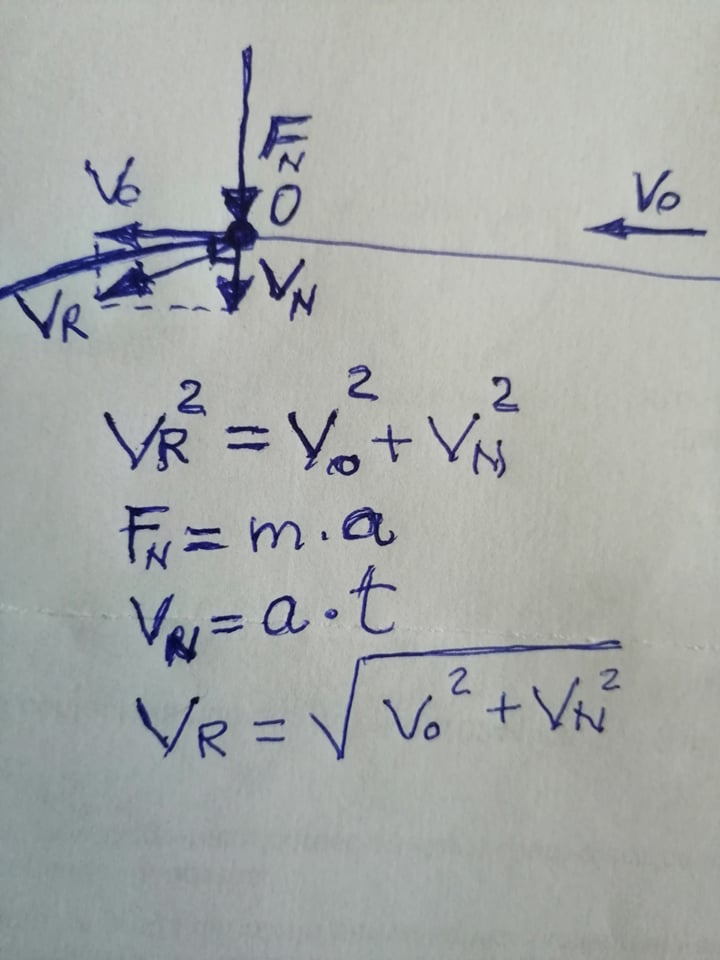 F_N
V₀ O V₀
V_R V_N
V_R² = V₀² + V_N²
F_N = m · a
V_N = a · t
V_R = √(V₀² + V_N²)